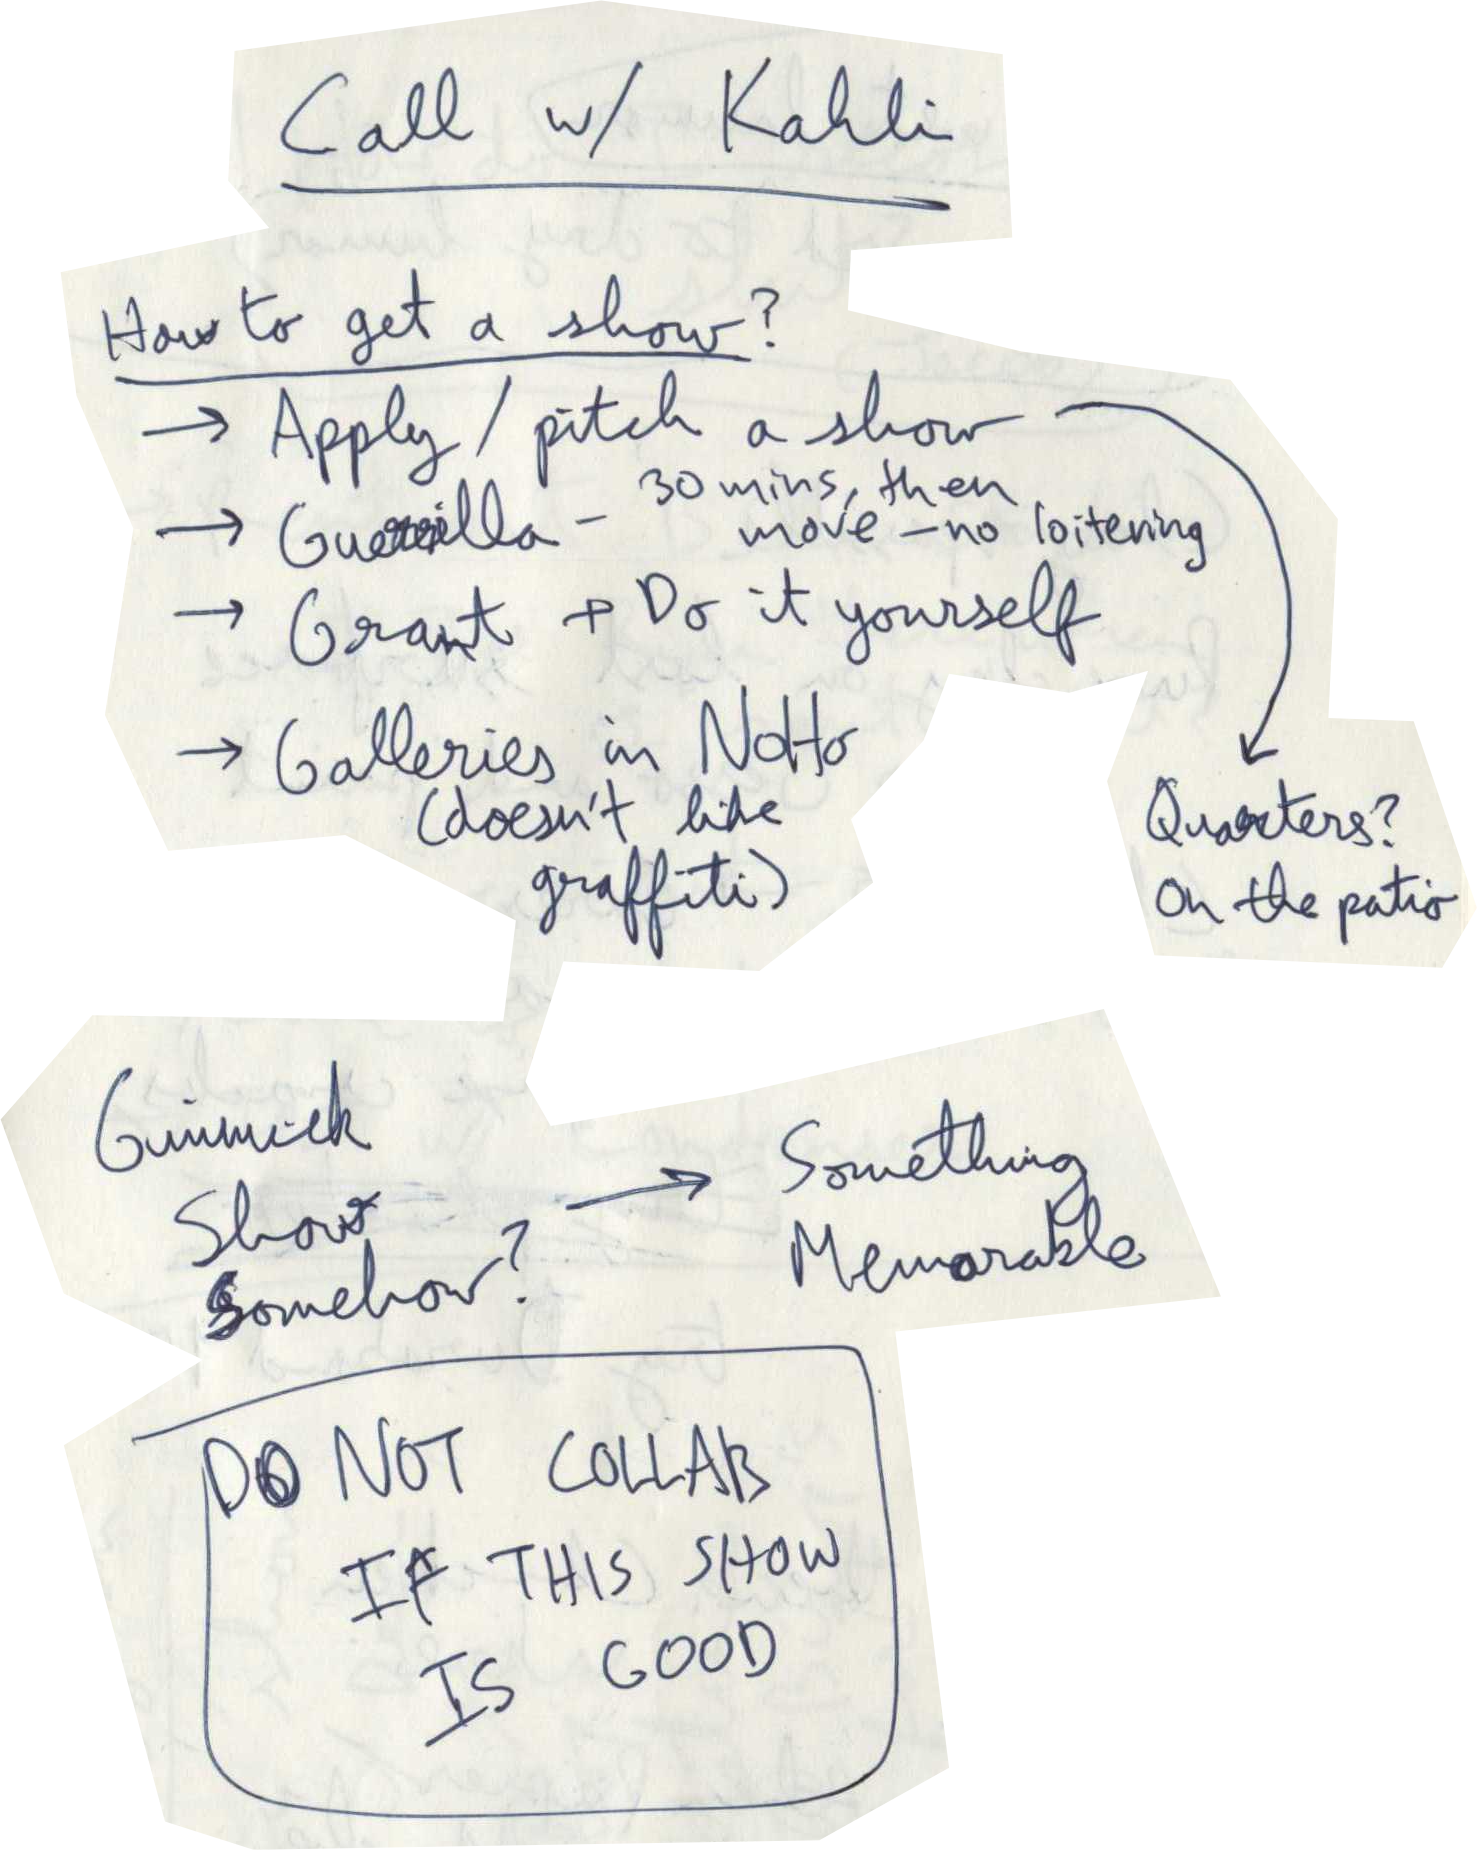 Call w/ Kahli
How to get a show?
→ Apply / pitch a show
→ Guerrilla - 30 mins, then
move - no loitering
→ Grant + Do it yourself
→ Galleries in NoHo
(doesn't like
graffiti)
Quarters?
On the patio
Gimmick
Show
Somehow?
→ Something
Memorable
DO NOT COLLAB
IF THIS SHOW
IS GOOD